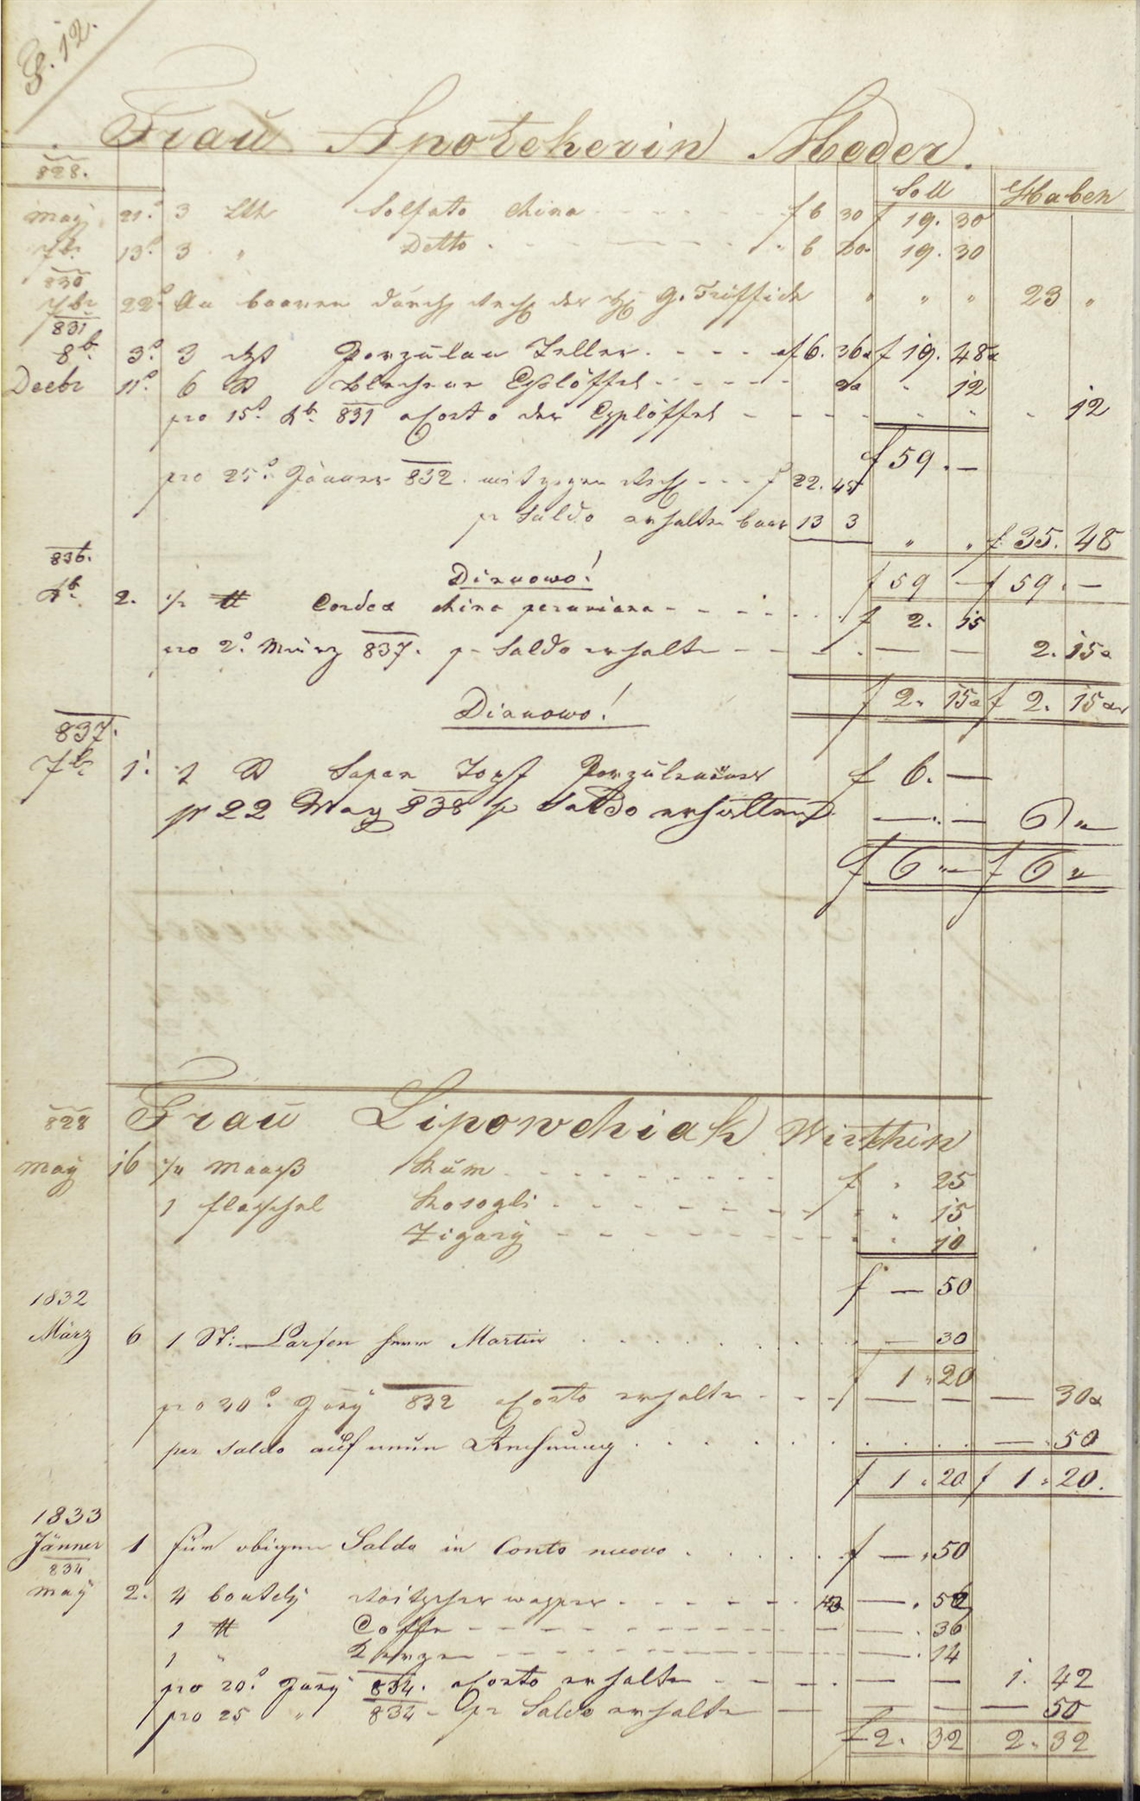 S. 12.
Frau Apotekerin Meder.
828.
Soll Haben
May 21. 3 Lth Solfato china f 6 30 f 19. 30
7br 13. 3 " Detto " 6 30 19. 30
830
7br 22 An baaren durch " " " 23 "
831
8br 3. 3 Porzulan Teller. f 6. 36 f 19. 48
Decbr 11. 6 Esslöffel 12
pro 15. 831 a Conto der Esslöffel 12
f 59. —
pro 25. Januar 832. mit gegen f 22. 45
pr Saldo erhalte baar 13 3 " " f 35. 48
836.
f 59 — f 59. —
Dianowo!
2. ½ ℔ Cordex china peruviana f 2. 15
pro 2. März 837. p Saldo erhalte — — 2. 15
f 2. 15 f 2. 15
Dianowo!
837.
7br 1. 1 Topf f 6. —
pr 22 May 838 p Saldo erhalten — — 6 "
f 6 " f 6 "
828 Frau Lipowchiak Wirthin
May 16 Maaß Rum f " 25
1 flaschel Rosogli " " 15
Zigary " " 10
f — 50
1832
März 6 1 St: Larfen Herr Martin — 30
f 1 " 20
pro 30. 832 a Conto erhalte — — — 30
per Saldo auf neue Rechnung — 50
f 1 " 20 f 1 " 20.
1833
Jänner 1 Für obigen Saldo in Conto nuovo f — " 50
834
May 2. 4 boutely wasser — . 52
1 ℔ Coffe — — . 36
1 " Kerzen — . 14
pro 20. 834. a Conto erhalte — — 1. 42
pro 25 " 834 - pr Saldo erhalte — — — 50
f 2. 32 2. 32